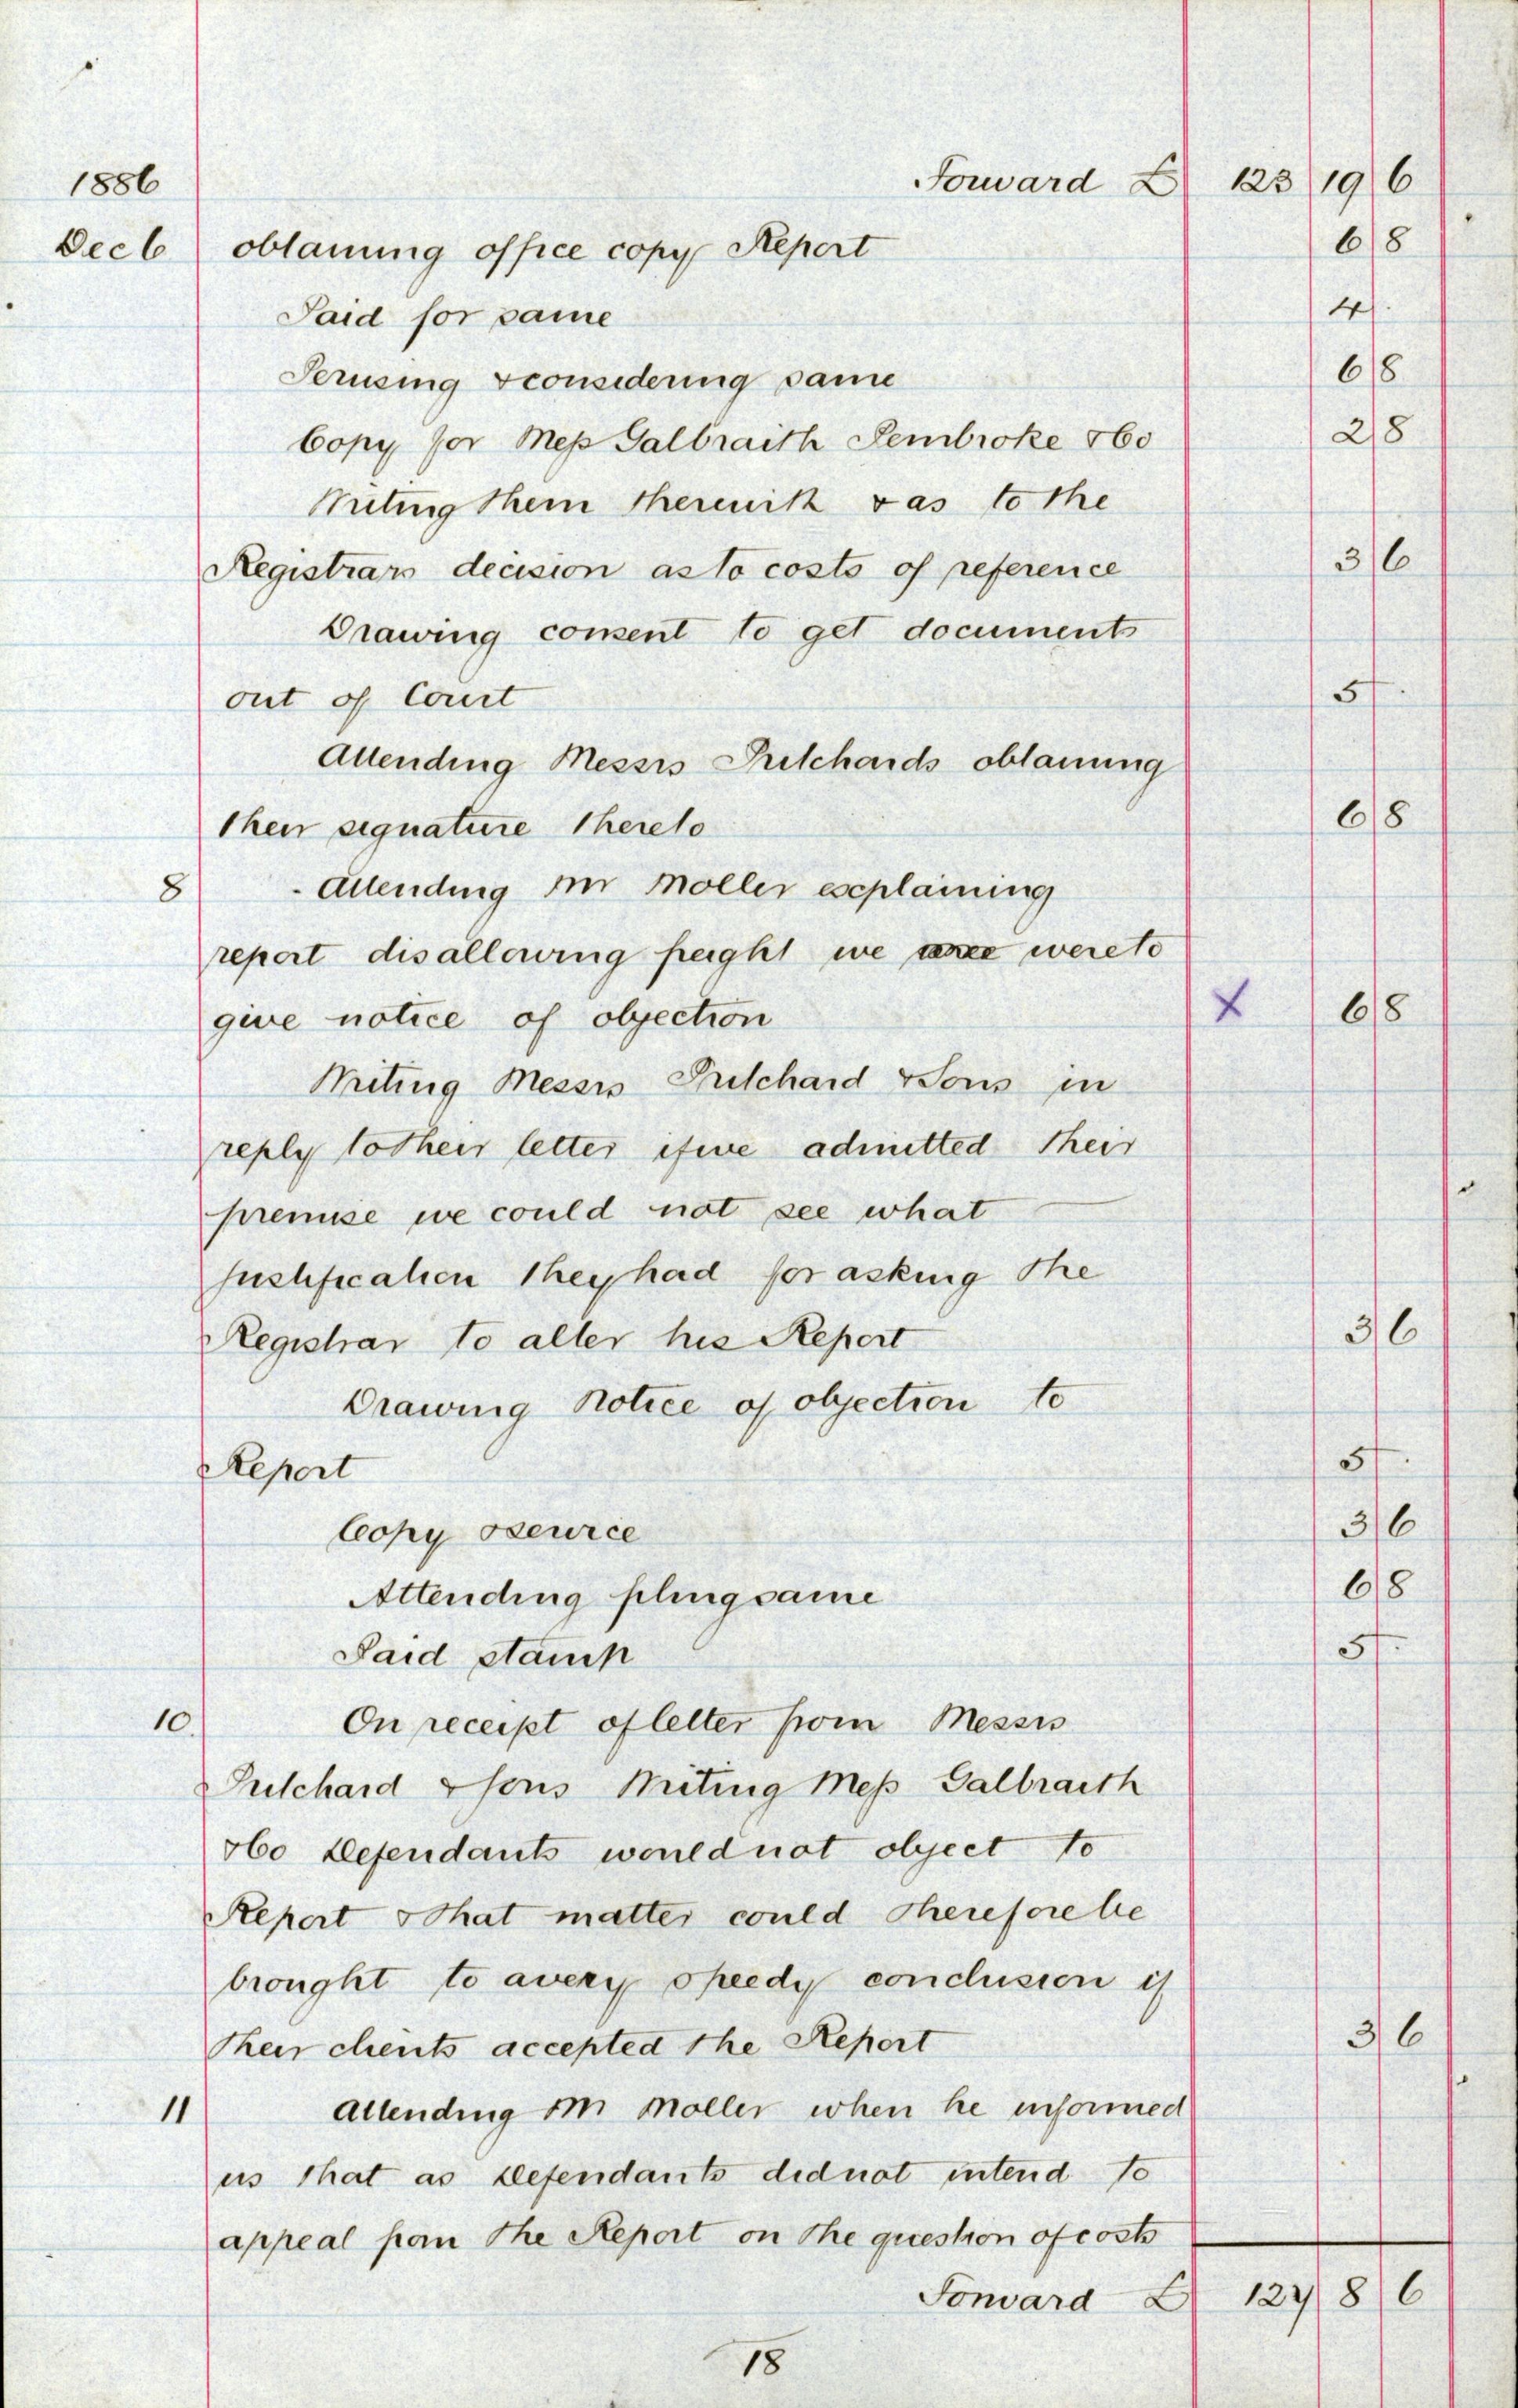 1886 Forward £ 123 19 6
Dec 6 obtaining office copy Report 6 8
Paid for same 4 .
Perusing & considering same 6 8
Copy for Mess Galbraith Pembroke & Co 2 8
Writing them therewith & as to the
Registrars decision as to costs of reference 3 6
Drawing consent to get documents
out of Court 5 .
Attending Messrs Pritchards obtaining
their signature thereto 6 8
8 Attending Mr Moller explaining
report disallowing freight we were to
give notice of objection X 6 8
Writing Messrs Pritchard & Sons in
reply to their letter if we admitted their
premise we could not see what
justification they had for asking the
Registrar to alter his Report 3 6
Drawing Notice of objection to
Report 5 .
Copy & service 3 6
Attending filing same 6 8
Paid stamp 5 .
10. On receipt of letter from Messrs
Pritchard & Sons Writing Mess Galbraith
& Co Defendants would not object to
Report & that matter could therefore be
brought to a very speedy conclusion if
their clients accepted the Report 3 6
11 Attending Mr Moller when he informed
us that as Defendants did not intend to
appeal from the Report on the question of costs
Forward £ 127 8 6
18